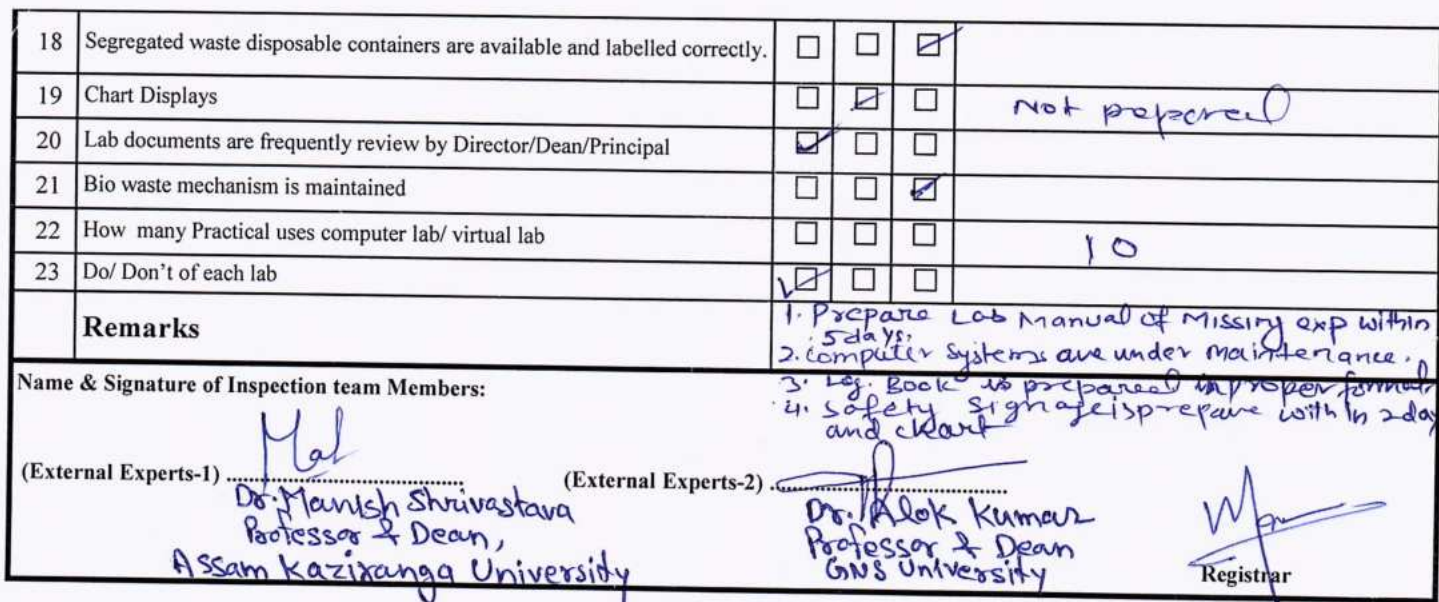 18 Segregated waste disposable containers are available and labelled correctly.
19 Chart Displays Not pepared
20 Lab documents are frequently review by Director/Dean/Principal
21 Bio waste mechanism is maintained
22 How many Practical uses computer lab/ virtual lab 10
23 Do/ Don't of each lab
Remarks
1. Prepare Lab Manual of Missing exp within
5 days.
2. Computer Systems are under maintenance.
3. Log. Book is prepared in proper format
4. Safety Signage is prepare with in 2 day
and chart
Name & Signature of Inspection team Members:
(External Experts-1) (External Experts-2)
Dr. Manish Shrivastava
Professor & Dean,
Assam Kaziranga University
Dr. Alok Kumar
Professor & Dean
GNS University
Registrar